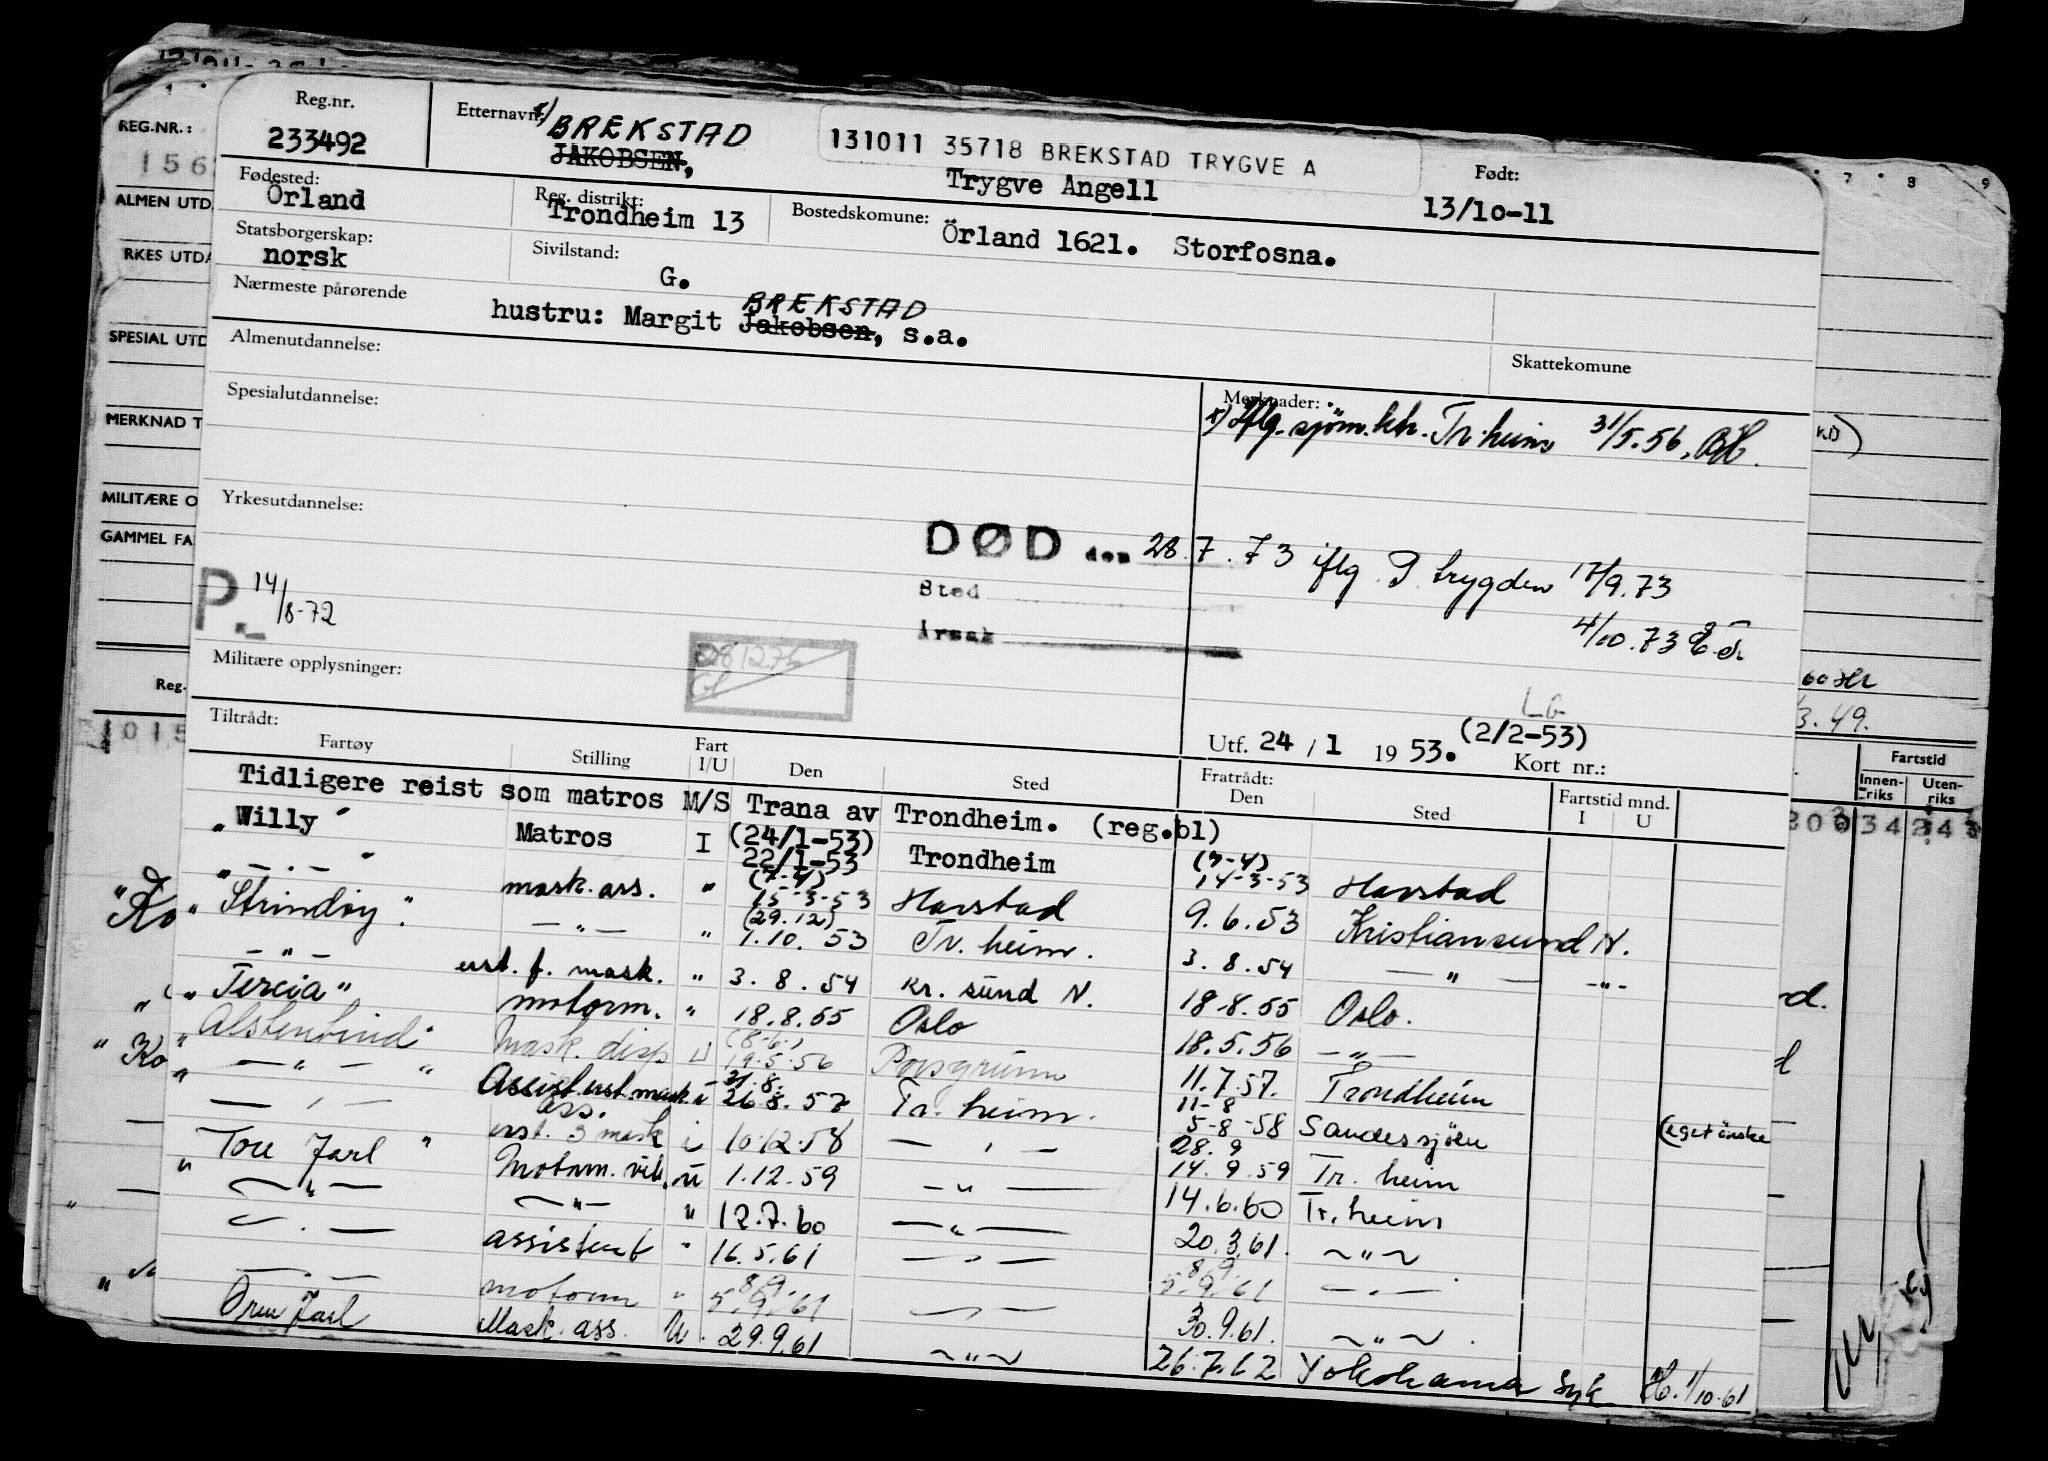 Reg.nr.
233492
Etternavn: x) BREKSTAD
JAKOBSEN,
131011 35718 BREKSTAD TRYGVE A
Trygve Angell
Født:
13/10-11
Fødested:
Örland
Reg. distrikt:
Trondheim 13
Bostedskomune:
Örland 1621. Storfosna.
Statsborgerskap:
norsk
Sivilstand:
G.
Nærmeste pårørende
BREKSTAD
hustru: Margit Jakobsen, s.a.
Almenutdannelse:
Skattekomune
Spesialutdannelse:
Merknader:
x) Iflg. sjöm.ktr. Tr.heim 31/5.56. BH.
Yrkesutdannelse:
DØD den 28.7.73 iflg. P trygden 17/9.73
Sted
Årsak
4/10.73
P. 14/8-72
Militære opplysninger:
LG
Utf. 24/1 1953. (2/2-53)
Kort nr.:
Tiltrådt:
Fartøy
Stilling
Fart I/U
Den
Sted
Fratrådt:
Den
Sted
Fartstid mnd.
I U
Tidligere reist som matros M/S Trana av Trondheim. (reg.bl)
"Willy" Matros I (24/1-53) 22/1-53 Trondheim (7-4) 14-3-53 Harstad
" — . — " mask. ass. " (7-4) 15-3-53 Harstad 9.6.53 Kristiansund N.
"Strindøy". — " — " (29.12) 1.10.53 Tr.heim. 3.8.54 — " — - " -
— " — ust. f. mask. " 3.8.54 Kr.sund N. 18-8.55 Oslo.
"Tercia" motorm. " 18.8.55 Oslo 18.5.56 — " —
Mask. disp (8-6.) 19.5.56 Porsgrunn 11.7.57. Trondheim
— " — " Assist. ust. mask. ass. i 31.8. 26.8.57 Tr.heim. 11-8 5-8-58 Sandessjöen (eget önske
— " — ust. 3 mask i 10.12.58 — " — 28.9 14.9.59 Tr.heim
"Tore Jarl" Motorm. vik. u 1.12.59 — " — 14.6.60 Tr.heim
— " — — " — " 12.7.60 — " — 20.3.61. — " —
— " — assistent " 16.5.61 — " — 8/9. 5.9.61 — " —
— " — motorm " 8/9. 5.9.61 — " — 30.9.61. — " —
Mask. ass. U. 29.9.61 — " — 26.7.62 Yokohama Syk 1/10-61
REG.NR.:
156
ALMEN UTD
RKES UTDA
SPESIAL UTD
MERKNAD T
MILITÆRE O
GAMMEL FA
Reg.
1015
"Ko
" Ko
7 8 9
3.49.
Fartstid
Innen-
riks
Uten-
riks